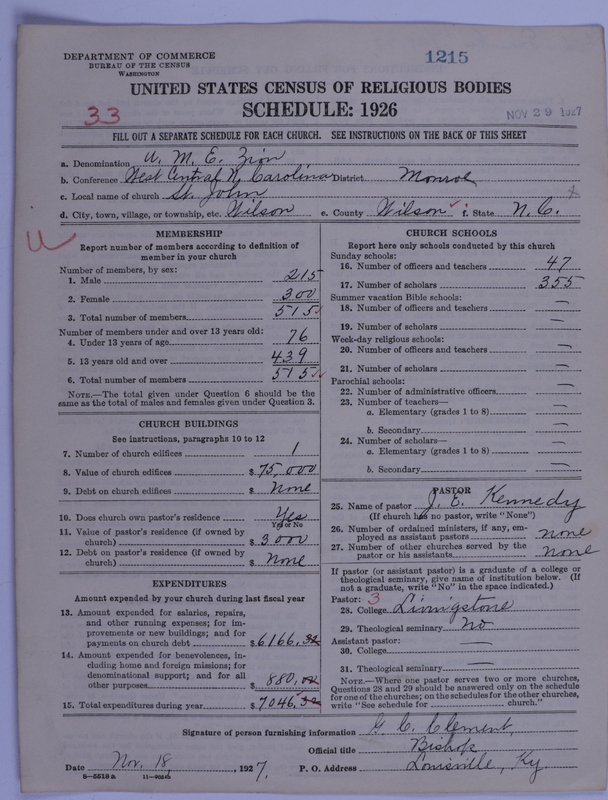 DEPARTMENT OF COMMERCE
BUREAU OF THE CENSUS
WASHINGTON
1215
UNITED STATES CENSUS OF RELIGIOUS BODIES
SCHEDULE: 1926
33
NOV 29 1927
FILL OUT A SEPARATE SCHEDULE FOR EACH CHURCH. SEE INSTRUCTIONS ON THE BACK OF THIS SHEET
a. Denomination A. M. E. Zion
b. Conference West Central N. Carolina District Monroe
c. Local name of church St. John
d. City, town, village, or township, etc. Wilson e. County Wilson f. State N. C.
MEMBERSHIP
Report number of members according to definition of
member in your church
Number of members, by sex:
1. Male 215
2. Female 300
3. Total number of members 515
Number of members under and over 13 years old:
4. Under 13 years of age 76
5. 13 years old and over 439
6. Total number of members 515
NOTE.—The total given under Question 6 should be the
same as the total of males and females given under Question 3.
CHURCH BUILDINGS
See instructions, paragraphs 10 to 12
7. Number of church edifices 1
8. Value of church edifices $ 75,000
9. Debt on church edifices $ None
10. Does church own pastor's residence Yes
Yes or No
11. Value of pastor's residence (if owned by
church) $ 3000
12. Debt on pastor's residence (if owned by
church) $ None
EXPENDITURES
Amount expended by your church during last fiscal year
13. Amount expended for salaries, repairs,
and other running expenses; for im-
provements or new buildings; and for
payments on church debt $ 6166.32
14. Amount expended for benevolences, in-
cluding home and foreign missions; for
denominational support; and for all
other purposes $ 880.02
15. Total expenditures during year $ 7046.32
CHURCH SCHOOLS
Report here only schools conducted by this church
Sunday schools:
16. Number of officers and teachers 47
17. Number of scholars 355
Summer vacation Bible schools:
18. Number of officers and teachers —
19. Number of scholars —
Week-day religious schools:
20. Number of officers and teachers —
21. Number of scholars —
Parochial schools:
22. Number of administrative officers —
23. Number of teachers—
a. Elementary (grades 1 to 8) —
b. Secondary —
24. Number of scholars—
a. Elementary (grades 1 to 8) —
b. Secondary —
PASTOR
25. Name of pastor J. E. Kennedy
(If church has no pastor, write "None")
26. Number of ordained ministers, if any, em-
ployed as assistant pastors none
27. Number of other churches served by the
pastor or his assistants none
If pastor (or assistant pastor) is a graduate of a college or
theological seminary, give name of institution below. (If
not a graduate, write "No" in the space indicated.)
Pastor: 3
28. College Livingstone
29. Theological seminary No
Assistant pastor:
30. College —
31. Theological seminary —
NOTE.—Where one pastor serves two or more churches,
Questions 28 and 29 should be answered only on the schedule
for one of the churches; on the schedules for the other churches,
write "See schedule for church."
Signature of person furnishing information G. C. Clement,
Official title Bishop
Date Nov. 18, 1927. P. O. Address Louisville, Ky.